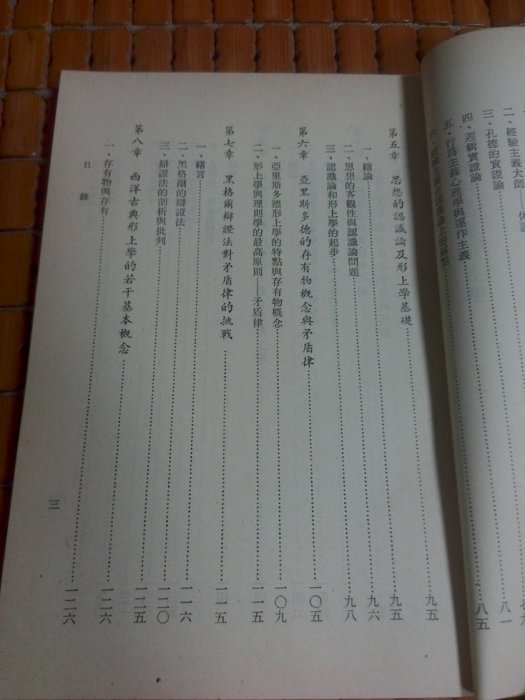 二、經驗主義大師
三、孔德的實證論
四、邏輯實證論
五、行為主義心理學與運作主義……八五
第五章　思想的認識論及形上學基礎……九五
一、緒論……九五
二、思想的客觀性與認識論問題……九六
三、認識論和形上學的起步……九八
第六章　亞里斯多德的存有物概念與矛盾律……一〇五
一、亞里斯多德形上學的特點與存有物概念……一〇九
二、形上學與理則學的最高原則——矛盾律……一一五
第七章　黑格爾辯證法對矛盾律的挑戰……一一五
一、緒言……一一六
二、黑格爾的辯證法……一二〇
三、辯證法的剖析與批判……一二五
第八章　西洋古典形上學的若干基本概念……一二六
一、存有物與存有……一二六
目錄
三